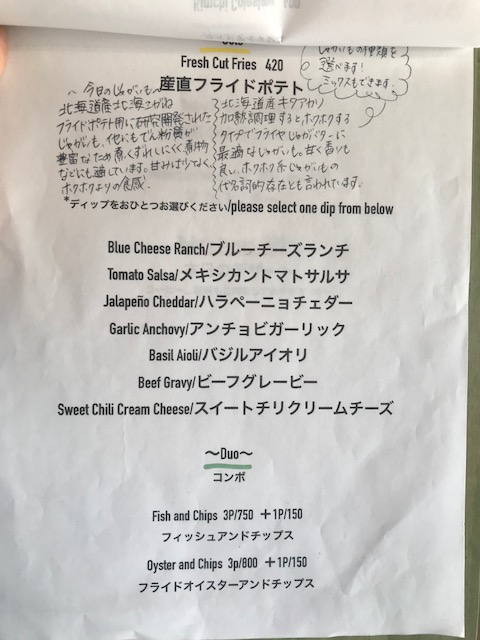 Solo
Fresh Cut Fries 420
産直フライドポテト
じゃがいもの種類を
選べます!
ミックスもできます。
~今日のじゃがいも~
北海道産北海こがね
フライドポテト用に研究開発された
じゃがいも。他にもでん粉質が
豊富なため煮くずれしにくく煮物
などにも適しています。甘みは少なく、
ホクホクよりの食感。
北海道産キタアカリ
加熱調理するとホクホクする
タイプでフライやじゃがバターに
最適なじゃがいも。甘く香りも
良い、ホクホク系じゃがいもの
代名詞的存在とも言われています。
*ディップをおひとつお選びください/please select one dip from below
Blue Cheese Ranch/ブルーチーズランチ
Tomato Salsa/メキシカントマトサルサ
Jalapeño Cheddar/ハラペーニョチェダー
Garlic Anchovy/アンチョビガーリック
Basil Aioli/バジルアイオリ
Beef Gravy/ビーフグレービー
Sweet Chili Cream Cheese/スイートチリクリームチーズ
~Duo~
コンボ
Fish and Chips 3P/750 +1P/150
フィッシュアンドチップス
Oyster and Chips 3p/800 +1P/150
フライドオイスターアンドチップス